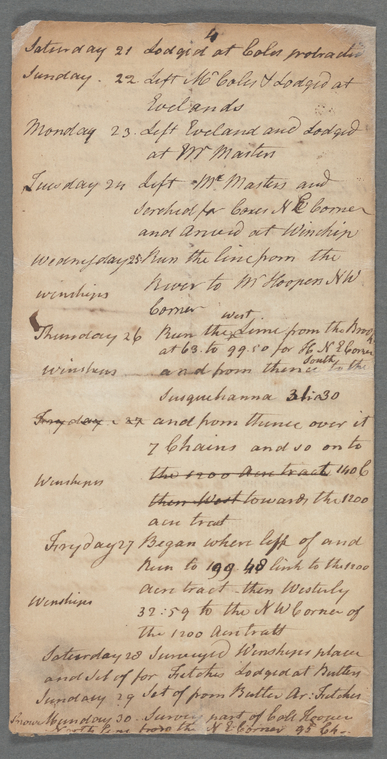 4
Saturday 21 Lodgid at Coles protracti
Sunday . 22 Left Mr Coles & Lodged at
Evelands
Monday 23. Left Eveland and Lodged
at Mr Masters
Tuesday 24 Left Mr Masters and
Serched for Coxes N E Corner
and Arived at Winship
Wednesday 25 Run the line from the
River to Mr Hoopers N W
winships
Corner
west
Thursday 26 Run the Line from the Broo
at 63. to 99.50 for H N E Corner
Winships and from thence South to the
Susquehanna 31:30
Fryday . 27 and from thence over it
7 Chains and so on to
the 1200 Acre tract 140 C
Winships
then West towards the 1200
acre trat
Fryday 27 Began where left of and
Run to 199 48 link to the 1200
acre tract then Westerly
Winships
32:59 to the N W Corner of
the 1200 Acre tratt
Saturday 28 Surveyed Winships place
and Set of for Fitches Lodged at Butlers
Sunday 29 Set of from Butler Ar: Fitches
Munday 30. Survey part of Coll Hooper
line from the N E Corner 95 Ch